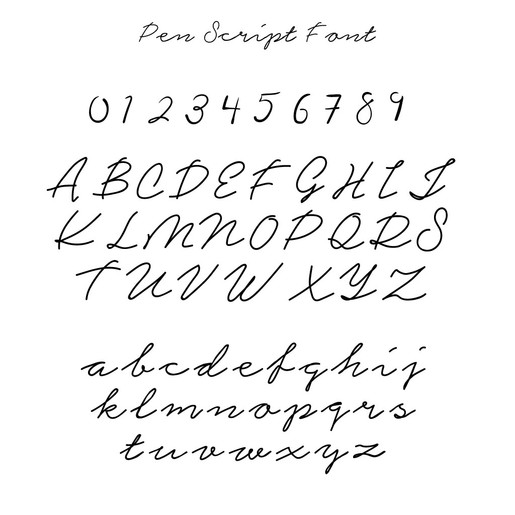 Pen Script Font
0 1 2 3 4 5 6 7 8 9
A B C D E F G H I J
K L M N O P Q R S
T U V W X Y Z
a b c d e f g h i j
k l m n o p q r s
t u v w x y z